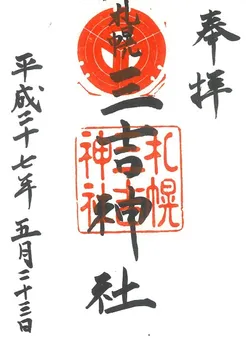 奉拝
札幌
三吉神社
札幌
三吉
神社
平成二十七年 五月二十三日